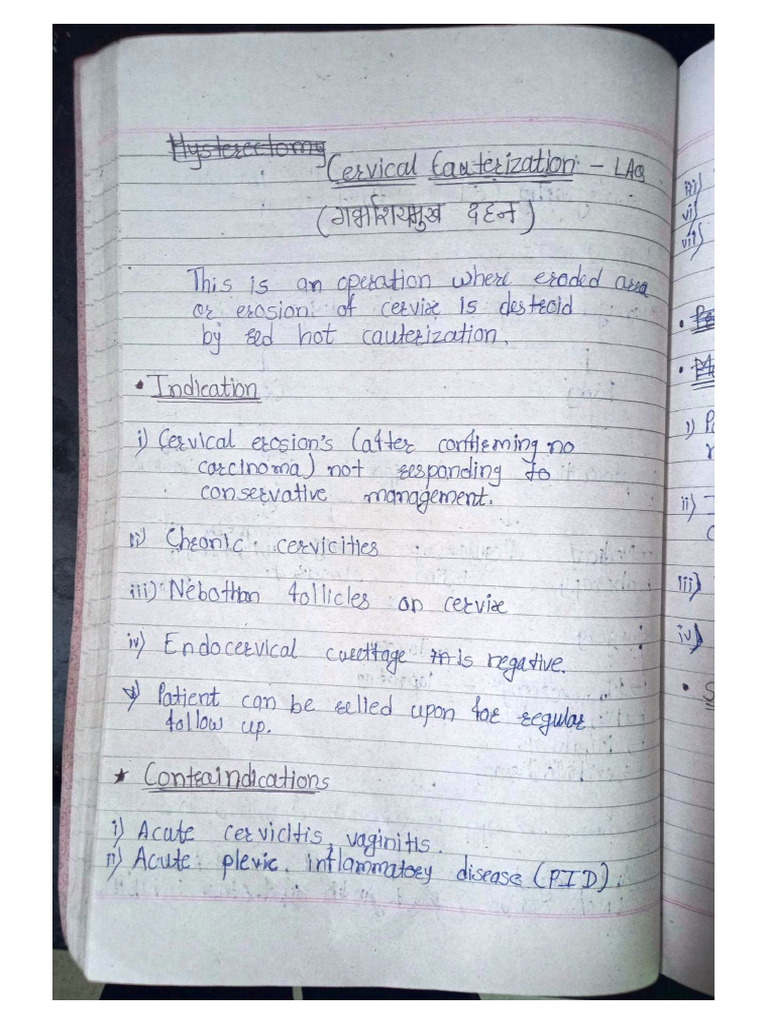 Hysterectomy
Cervical Cauterization - LAQ
(गर्भाशयमुख दहन)
This is an operation where eroded area
or erosion of cervix is destroid
by red hot cauterization.
• Indication
i) Cervical erosion's (after confirming no
carcinoma) not responding to
conservative management.
ii) Chronic cervicities
iii) Nebothan follicles on cervix
iv) Endocervical curettage is negative.
v) Patient can be relled upon for regular
follow up.
* Contraindications
i) Acute cervicitis, vaginitis.
ii) Acute plevic inflammatory disease (PID).
vi)
vii)
•
•
i)
ii)
iii)
iv)
• S